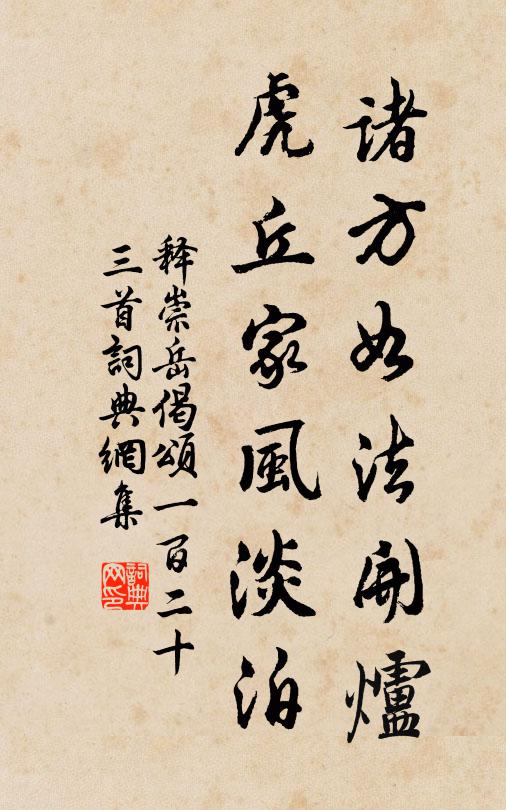 諸方如法開爐
虎丘家風淡泊
释崇岳偈頌一百二十
三首詞典網集
詞典
网印